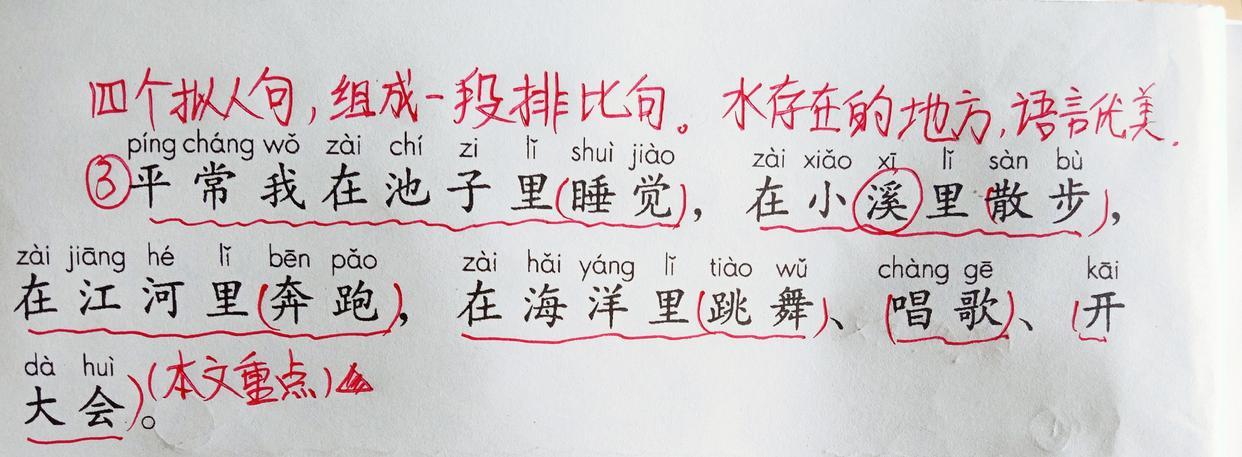 四个拟人句,组成一段排比句。水存在的地方,语言优美.
píng cháng wǒ zài chí zi lǐ shuì jiào zài xiǎo xī lǐ sàn bù
③平常我在池子里(睡觉),在小溪里(散步),
zài jiāng hé lǐ bēn pǎo zài hǎi yáng lǐ tiào wǔ chàng gē kāi
在江河里(奔跑),在海洋里(跳舞)、(唱歌)、(开
dà huì
大会)。(本文重点)